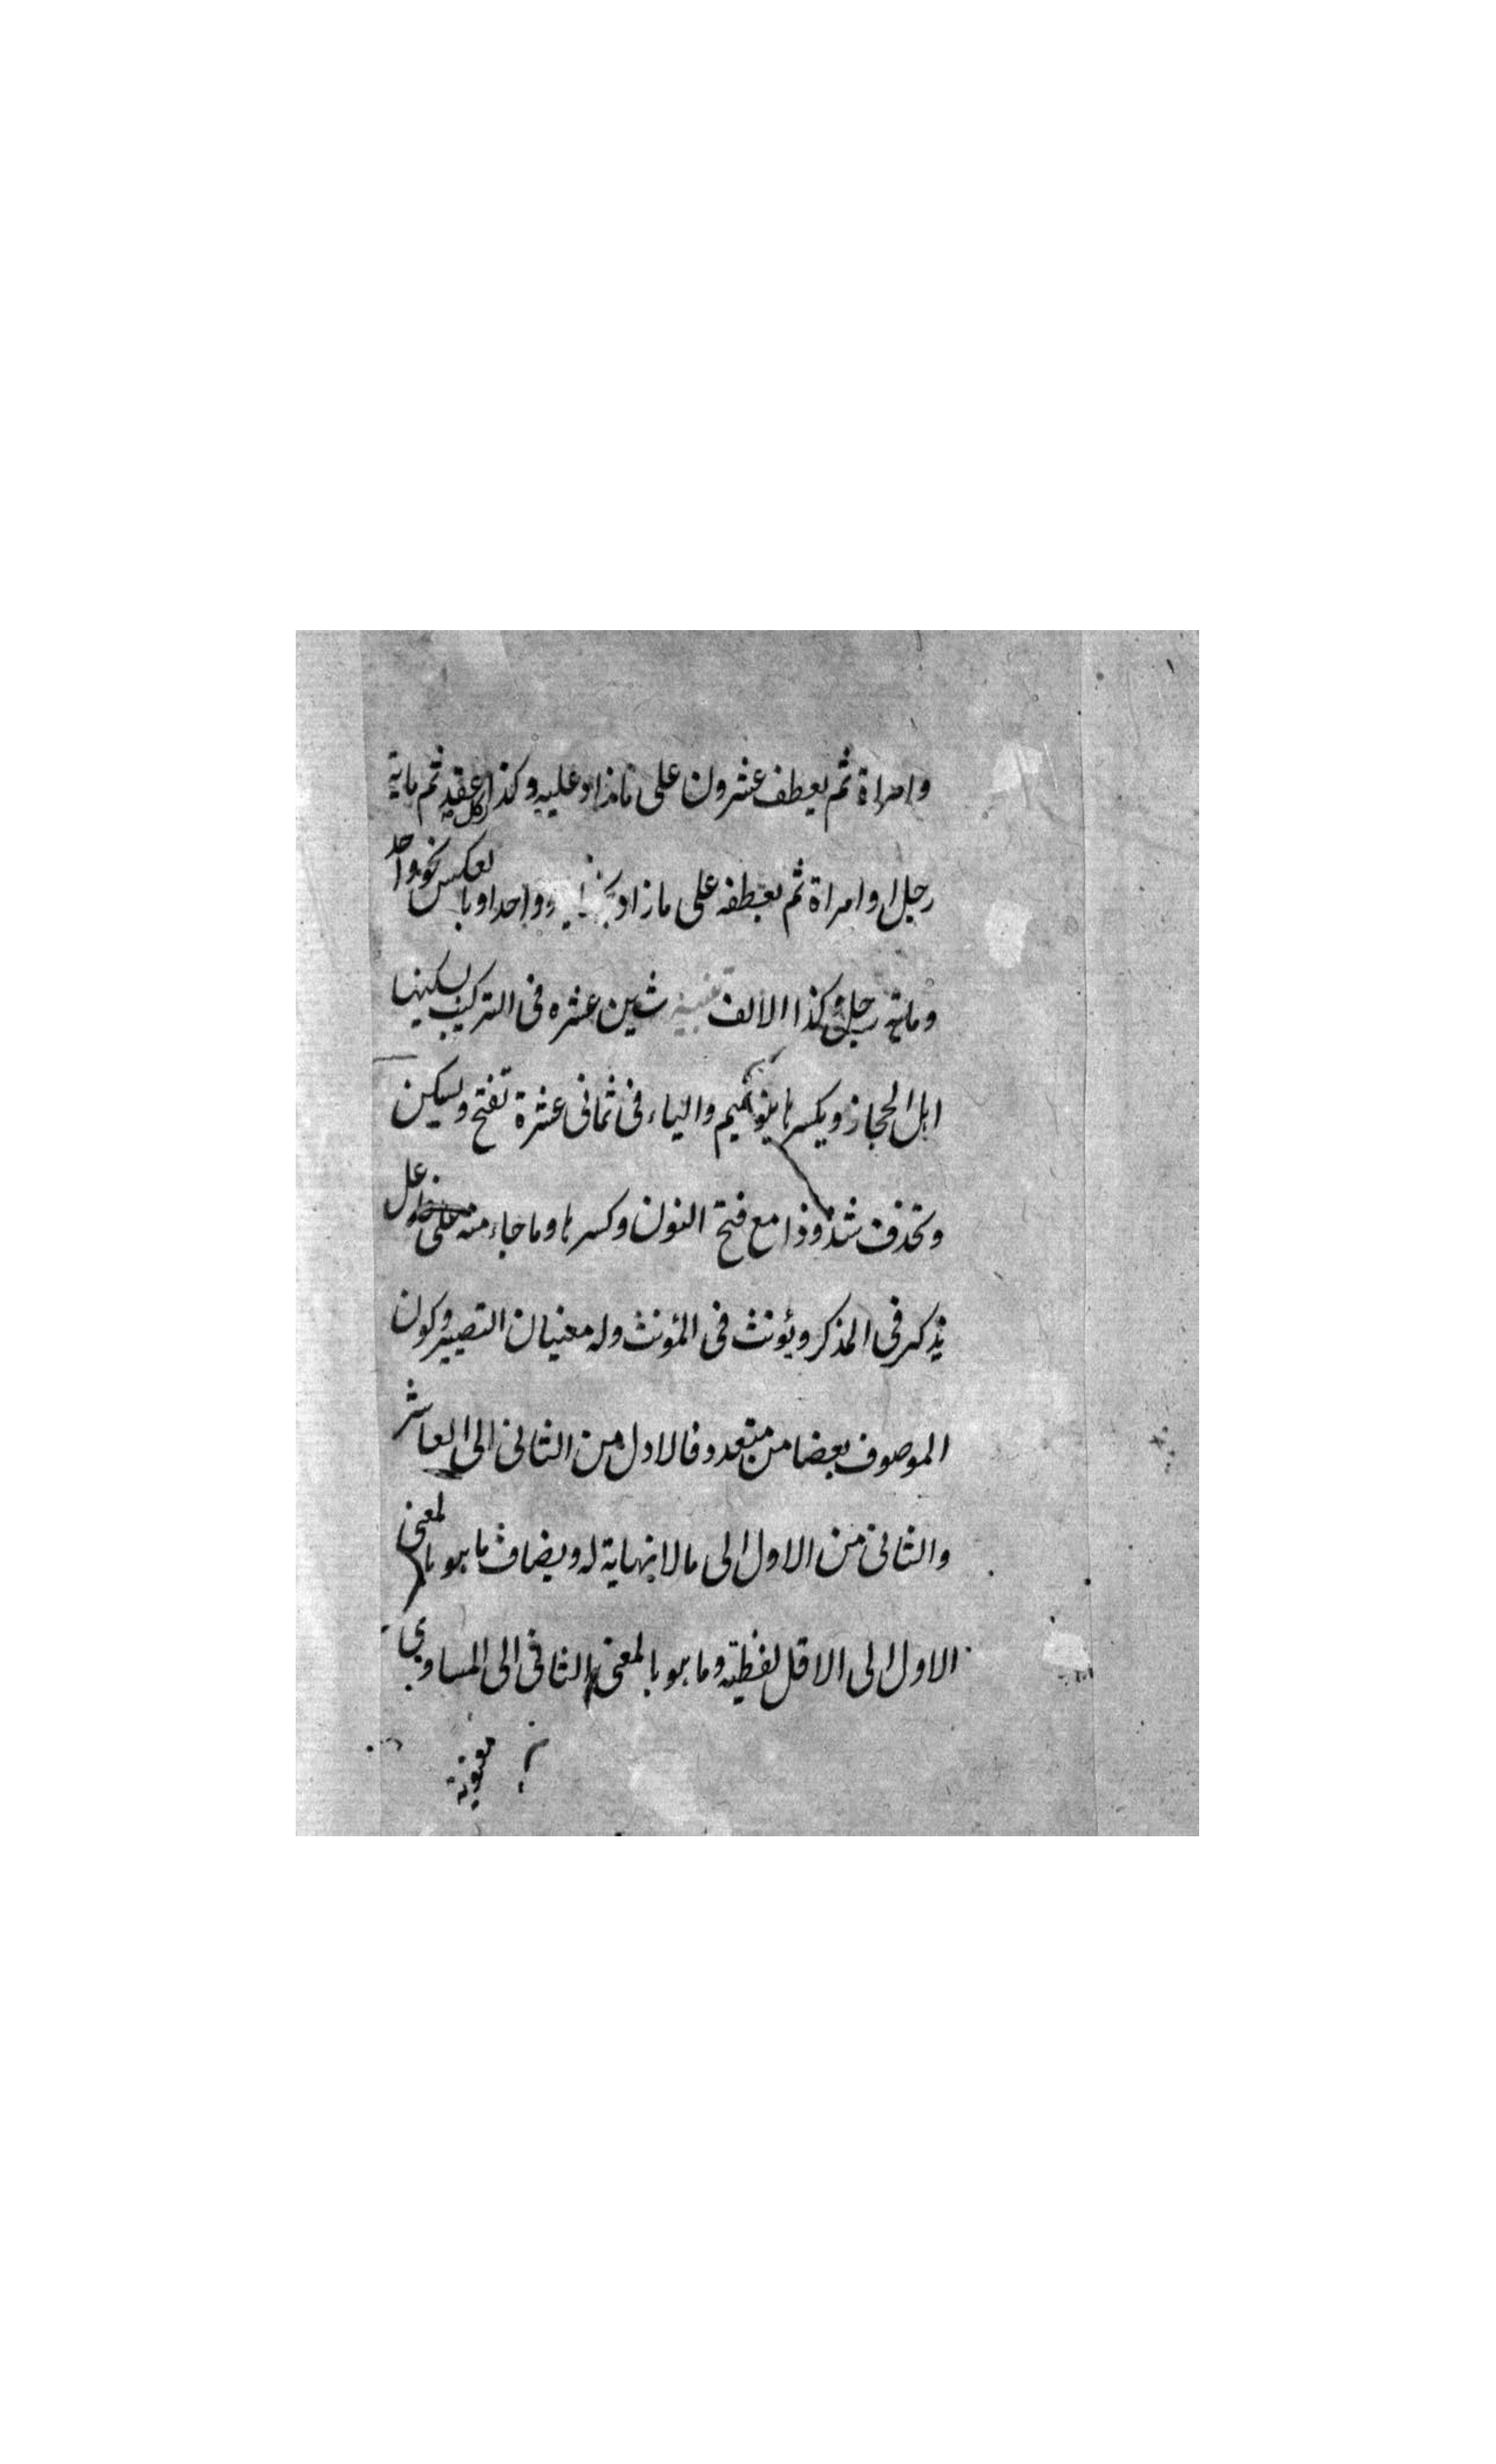 وامراة ثم يعطف عشرون على ما زاد عليه وكذا كل عقد ثم ماية
رجل او امراة ثم يعطفه على ما زاد وواحد او بالعكس نحو واحد
وماية رجل وكذا الالف تنبيه شين عشره فى التركيب يسكنها
اهل الحجاز ويكسرها بنو تميم والياء فى ثمانى عشرة تفتح ويسكن
وتحذف شذوذا مع فتح النون وكسرها وما جاء منه على فاعل
يذكر فى المذكر ويؤنث فى المؤنث وله معنيان التصيير وكون
الموصوف بعضا من متعدد فالاول من الثانى الى العاشر
والثانى من الاول الى ما لا نهاية له ويضاف ما هو بالمعنى
الاول الى الاقل لفظية وما هو بالمعنى الثانى الى المساوى
معنوية